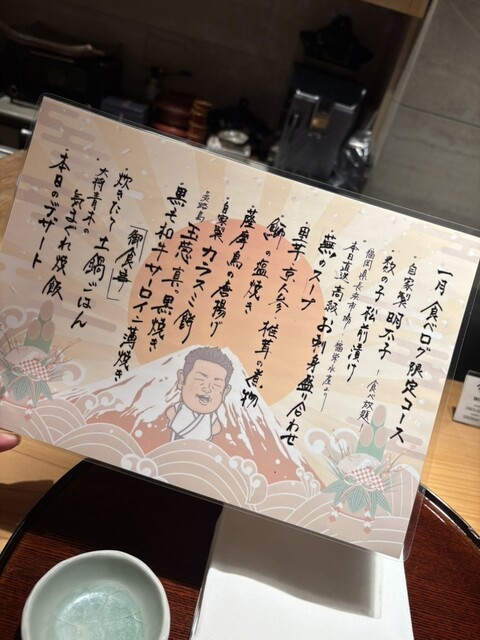 一月 食べログ限定コース
・自家製 明太子 ー食べ放題ー
・数の子 松前漬け
福岡県 長浜市場
本日直送 高級 お刺身盛り合わせ
・蕪のスープ
・里芋、京人参、椎茸の煮物
・鰤の塩焼き
・薩摩鳥の唐揚げ
・自家製 カラスミ餅
・淡路島 玉葱 真っ黒焼き
・黒毛和牛サーロイン薄焼き
「御食事」
・炊きたて土鍋ごはん
・大将青木の気まぐれ炒飯
・本日のデザート